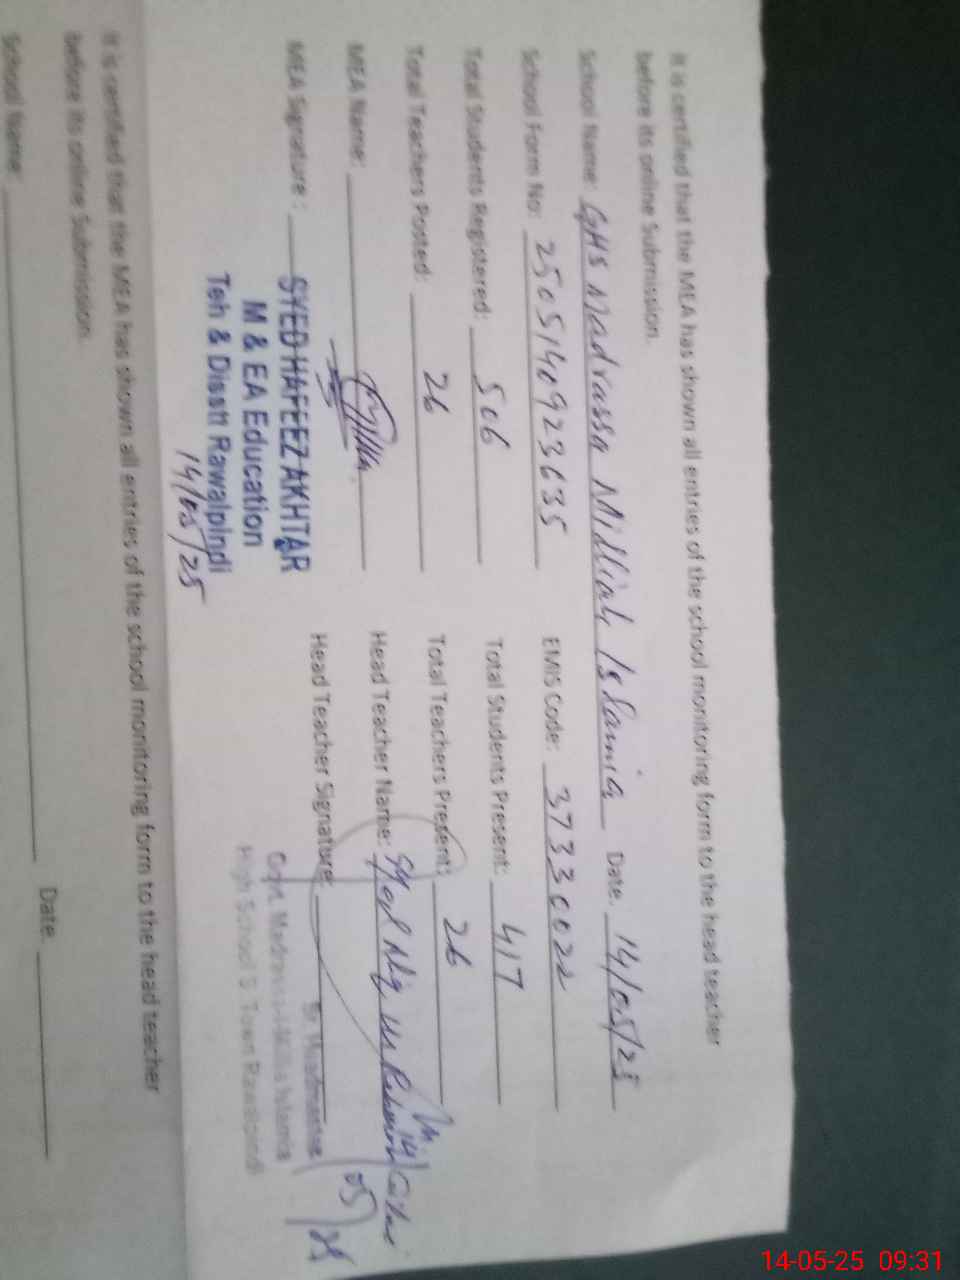 It is certified that the MEA has shown all entries of the school monitoring form to the head teacher
before its online Submission.
School Name: GHS Madrassa Milliah Islamia Date. 14/05/25
School Form No: 2505140923635 EMIS Code: 37330022
Total Students Registered: 506 Total Students Present: 417
Total Teachers Posted: 26 Total Teachers Present: 26
MEA Name: Head Teacher Name:
MEA Signature: Head Teacher Signature:
SYED HAFEEZ AKHTAR
M & EA Education
Teh & Disstt Rawalpindi
14/05/25
Sr. Headmaster
Govt. Madrassa Millia Islamia
High School S. Town Rawalpindi
14/05/25
It is certified that the MEA has shown all entries of the school monitoring form to the head teacher
before its online Submission.
School Name: Date.
14-05-25 09:31